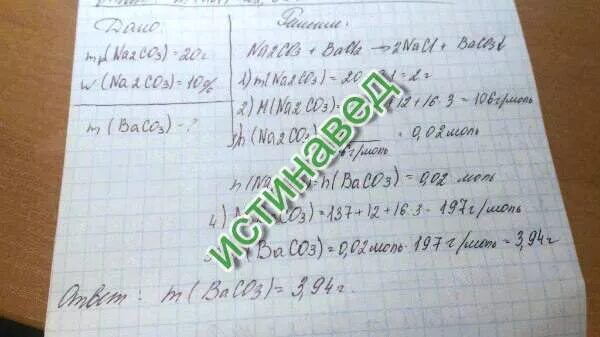 Дано:
mр(Na2CO3) = 20г
w(Na2CO3) = 10%
m(BaCO3) - ?
Решение:
Na2CO3 + BaCl2 → 2NaCl + BaCO3↓
1) m(Na2CO3) = 20 0,1 = 2г
2) M(Na2CO3) = 12 + 16·3 = 106г/моль
3) n(Na2CO3) = 0,02 моль
г/моль
n(Na = n(BaCO3) = 0,02 моль
4) CO3) = 137 + 12 + 16·3 = 197г/моль
(BaCO3) = 0,02моль · 197г/моль = 3,94г
Ответ: m(BaCO3) = 3,94г.
ИСТИНАВЕД